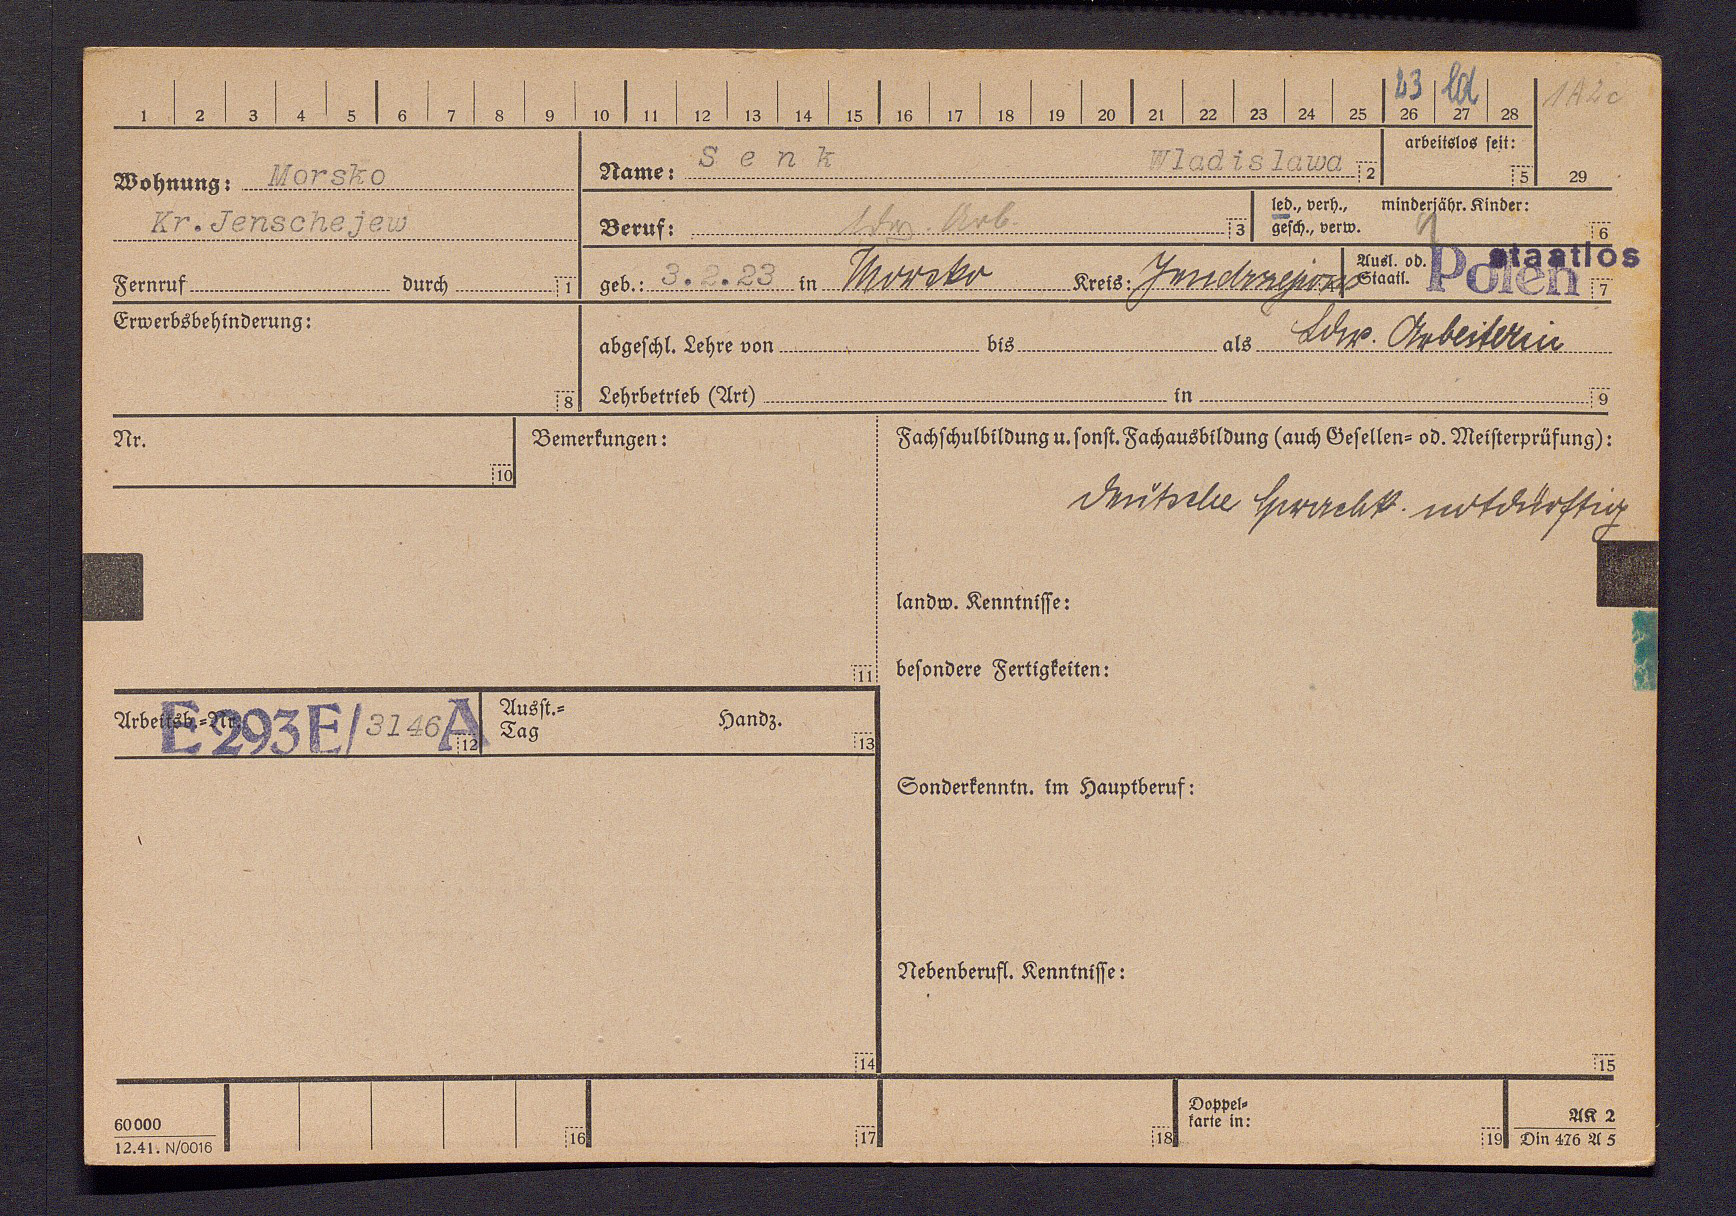 1 2 3 4 5 6 7 8 9 10 11 12 13 14 15 16 17 18 19 20 21 22 23 24 25 26 27 28 29
23 ld 1A2c
Wohnung: Morsko
Kr.Jenschejew
Fernruf durch 1
Name: Senk Wladislawa 2
arbeitslos seit: 5
Beruf: ldw. Arb. 3
led., verh., gesch., verw.
minderjähr. Kinder: 6
geb.: 3.2.23 in Morsko Kreis: Jendrzejow
Ausl. od. Staatl. Polen staatlos 7
Erwerbsbehinderung: 8
abgeschl. Lehre von bis als Ldw. Arbeiterin
Lehrbetrieb (Art) in 9
Nr. 10
Bemerkungen: 11
Fachschulbildung u. sonst. Fachausbildung (auch Gesellen- od. Meisterprüfung):
deutsche Sprachk. notdürftig
landw. Kenntnisse:
besondere Fertigkeiten:
Arbeitsb.-Nr. E293E/3146A 12
Ausst.-Tag Handz. 13
Sonderkenntn. im Hauptberuf:
Nebenberufl. Kenntnisse:
14 15
60000
12.41. N/0016
16 17 18
Doppel-
karte in: 19
AK 2
Din 476 A 5